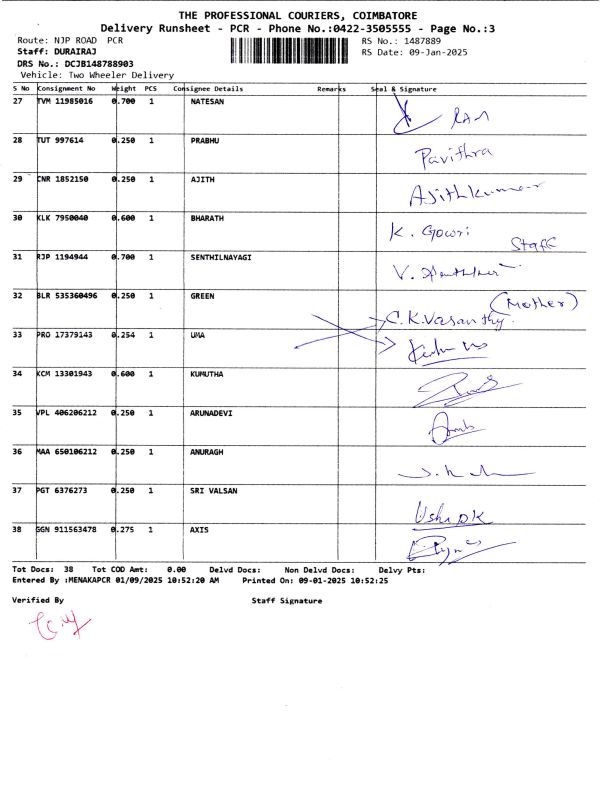 THE PROFESSIONAL COURIERS, COIMBATORE
Delivery Runsheet - PCR - Phone No.:0422-3505555 - Page No.:3
Route: NJP ROAD PCR RS No.: 1487889
Staff: DURAIRAJ RS Date: 09-Jan-2025
DRS No.: DCJB148788903
Vehicle: Two Wheeler Delivery
S No Consignment No Weight PCS Consignee Details Remarks Seal & Signature
27 TVM 11985016 0.700 1 NATESAN
RAM
28 TUT 997614 0.250 1 PRABHU
Pavithra
29 CNR 1852150 0.250 1 AJITH
AJithkumar
30 KLK 7950040 0.600 1 BHARATH
K. Gowri
Staff
31 RJP 1194944 0.700 1 SENTHILNAYAGI
V.
32 BLR 535360496 0.250 1 GREEN
(Mother)
C.K.Vasanthy.
33 PRO 17379143 0.254 1 UMA
34 KCM 13301943 0.600 1 KUMUTHA
35 VPL 406206212 0.250 1 ARUNADEVI
36 MAA 650106212 0.250 1 ANURAGH
37 PGT 6376273 0.250 1 SRI VALSAN
Usha DK
38 GGN 911563478 0.275 1 AXIS
Tot Docs: 38 Tot COD Amt: 0.00 Delvd Docs: Non Delvd Docs: Delvy Pts:
Entered By :MENAKAPCR 01/09/2025 10:52:20 AM Printed On: 09-01-2025 10:52:25
Verified By Staff Signature